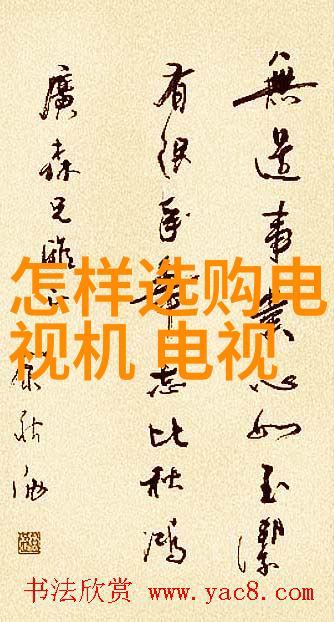 無邊事業心如玉潔
有限年華志比秋鴻
廣森兄雅
怎样选购电
视机 电视
书法欣赏 www.yac8.com